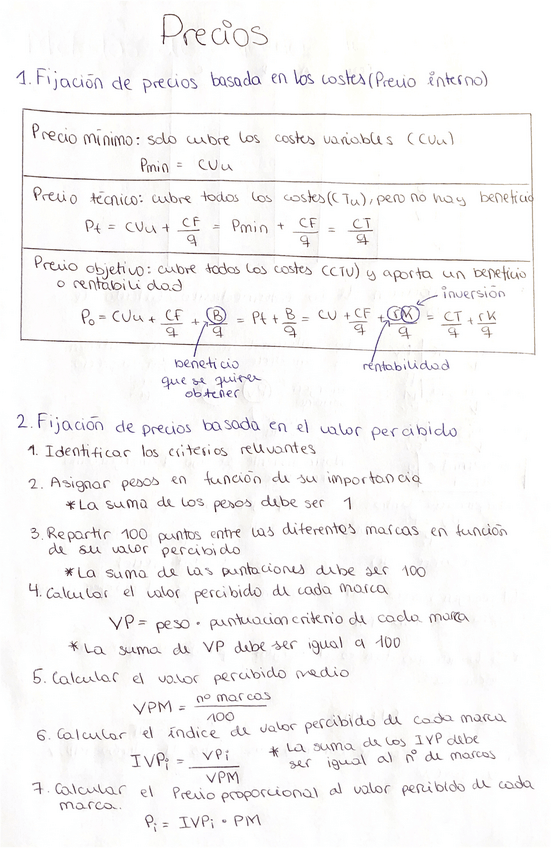 Precios
1. Fijación de precios basada en los costes (Precio interno)
Precio mínimo: solo cubre los costes variables (CVu)
Pmin = CVu
Precio técnico: cubre todos los costes (CTu), pero no hay beneficio
Pt = CVu + CF/q = Pmin + CF/q = CT/q
Precio objetivo: cubre todos los costes (CTU) y aporta un beneficio
o rentabilidad
inversión
Po = CVu + CF/q + B/q = Pt + B/q = CV + CF/q + rK/q = CT/q + rK/q
beneficio
que se quiere
obtener
rentabilidad
2. Fijación de precios basada en el valor percibido
1. Identificar los criterios relevantes
2. Asignar pesos en función de su importancia
* La suma de los pesos debe ser 1
3. Repartir 100 puntos entre las diferentes marcas en función
de su valor percibido
* La suma de las puntaciones debe ser 100
4. Calcular el valor percibido de cada marca
VP = peso · puntuacion criterio de cada marca
* La suma de VP debe ser igual a 100
5. Calcular el valor percibido medio
VPM = nº marcas/100
6. Calcular el índice de valor percibido de cada marca
IVPi = VPi/VPM
* La suma de los IVP debe
ser igual al nº de marcas
7. Calcular el Precio proporcional al valor percibido de cada
marca.
Pi = IVPi · PM